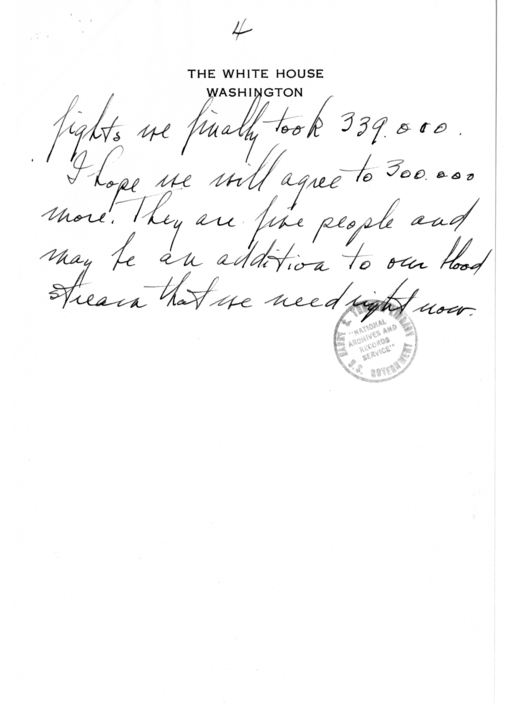 4
THE WHITE HOUSE
WASHINGTON
fights we finally took 339.000.
I hope we will agree to 300.000
more. They are fine people and
may be an addition to our blood
stream that we need right now.
HARRY S. TRUMAN LIBRARY
"NATIONAL
ARCHIVES AND
RECORDS
SERVICE"
U.S. GOVERNMENT